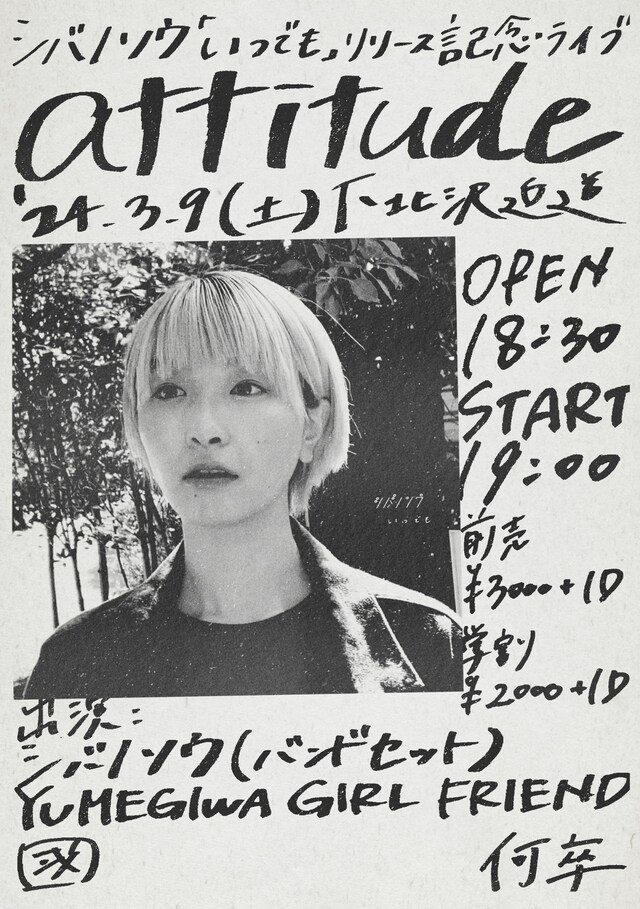 シバノソウ「いつでも」リリース記念ライブ
attitude
'24.3.9(土)下北沢近道
OPEN
18:30
START
19:00
前売
¥3000+1D
学割
¥2000+1D
シバノソウ
いつでも
出演:
シバノソウ(バンドセット)
YUMEGIWA GIRL FRIEND
何卒